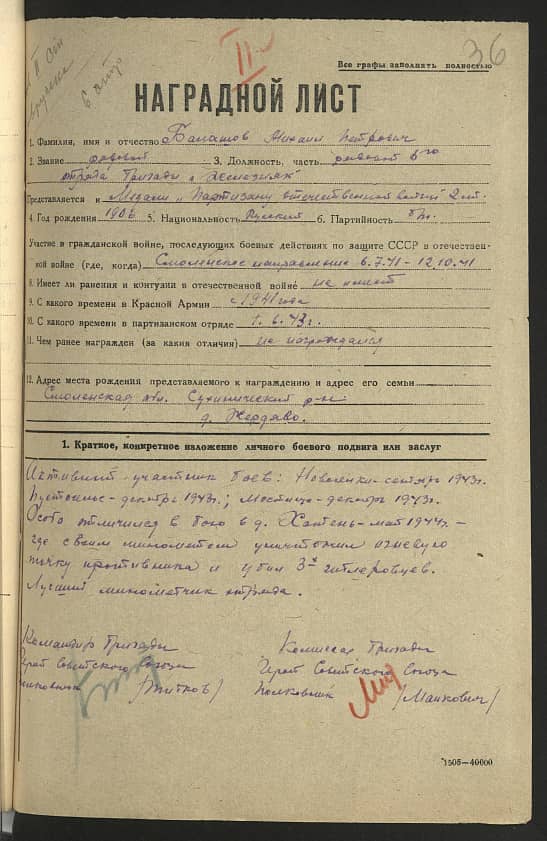 II
36
Все графы заполнять полностью
НАГРАДНОЙ ЛИСТ
1. Фамилия, имя и отчество Балашов Михаил Петрович
2. Звание рядовой 3. Должность, часть рядовой 6го
отряда бригады „Железняк"
Представляется к Медали „Партизану отечественной войны" 2 ст.
4. Год рождения 1906 5. Национальность Русский 6. Партийность б/п.
Участие в гражданской войне, последующих боевых действиях по защите СССР в отечествен-
ной войне (где, когда) Смоленское направление 6.7.41 - 12.10.41
8. Имеет ли ранения и контузии в отечественной войне не имеет
9. С какого времени в Красной Армии с 1941 года
10. С какого времени в партизанском отряде 1.6.43 г.
11. Чем ранее награжден (за какия отличия) не награждался
12. Адрес места рождения представляемого к награждению и адрес его семьи
Смоленская обл. Сухиничский р-н
д. Жердяво.
1. Краткое, конкретное изложение личного боевого подвига или заслуг
Активный участник боев: сентябрь 1943г.
декабрь 1943г.; декабрь 1943г.
Особо отличился в бою в д. май 1944г. -
где своим минометом уничтожил огневую
точку противника и убил 3х гитлеровцев.
Лучший минометчик отряда.
Командир бригады
Герой Советского Союза
полковник (Титков)
Комиссар бригады
Герой Советского Союза
Полковник (Манкович)
1505—40000